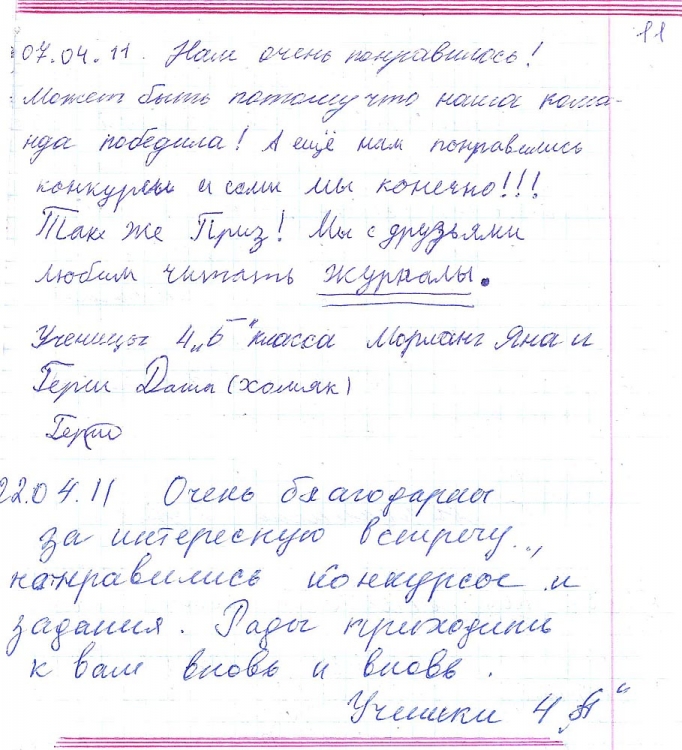 11
07.04.11. Нам очень понравилось!
Может быть потому что наша кома-
нда победила! А ещё нам понравились
конкурсы и сами мы конечно!!!
Так же Приз! Мы с друзьями
любим читать журналы.
Ученицы 4 „Б" класса Морланг Яна и
Герш Даша (хомяк)
22.04.11 Очень благодарны
за интересную встречу.,
понравились конкурсы и
задания. Рады приходить
к вам вновь и вновь.
Ученики 4 „А"